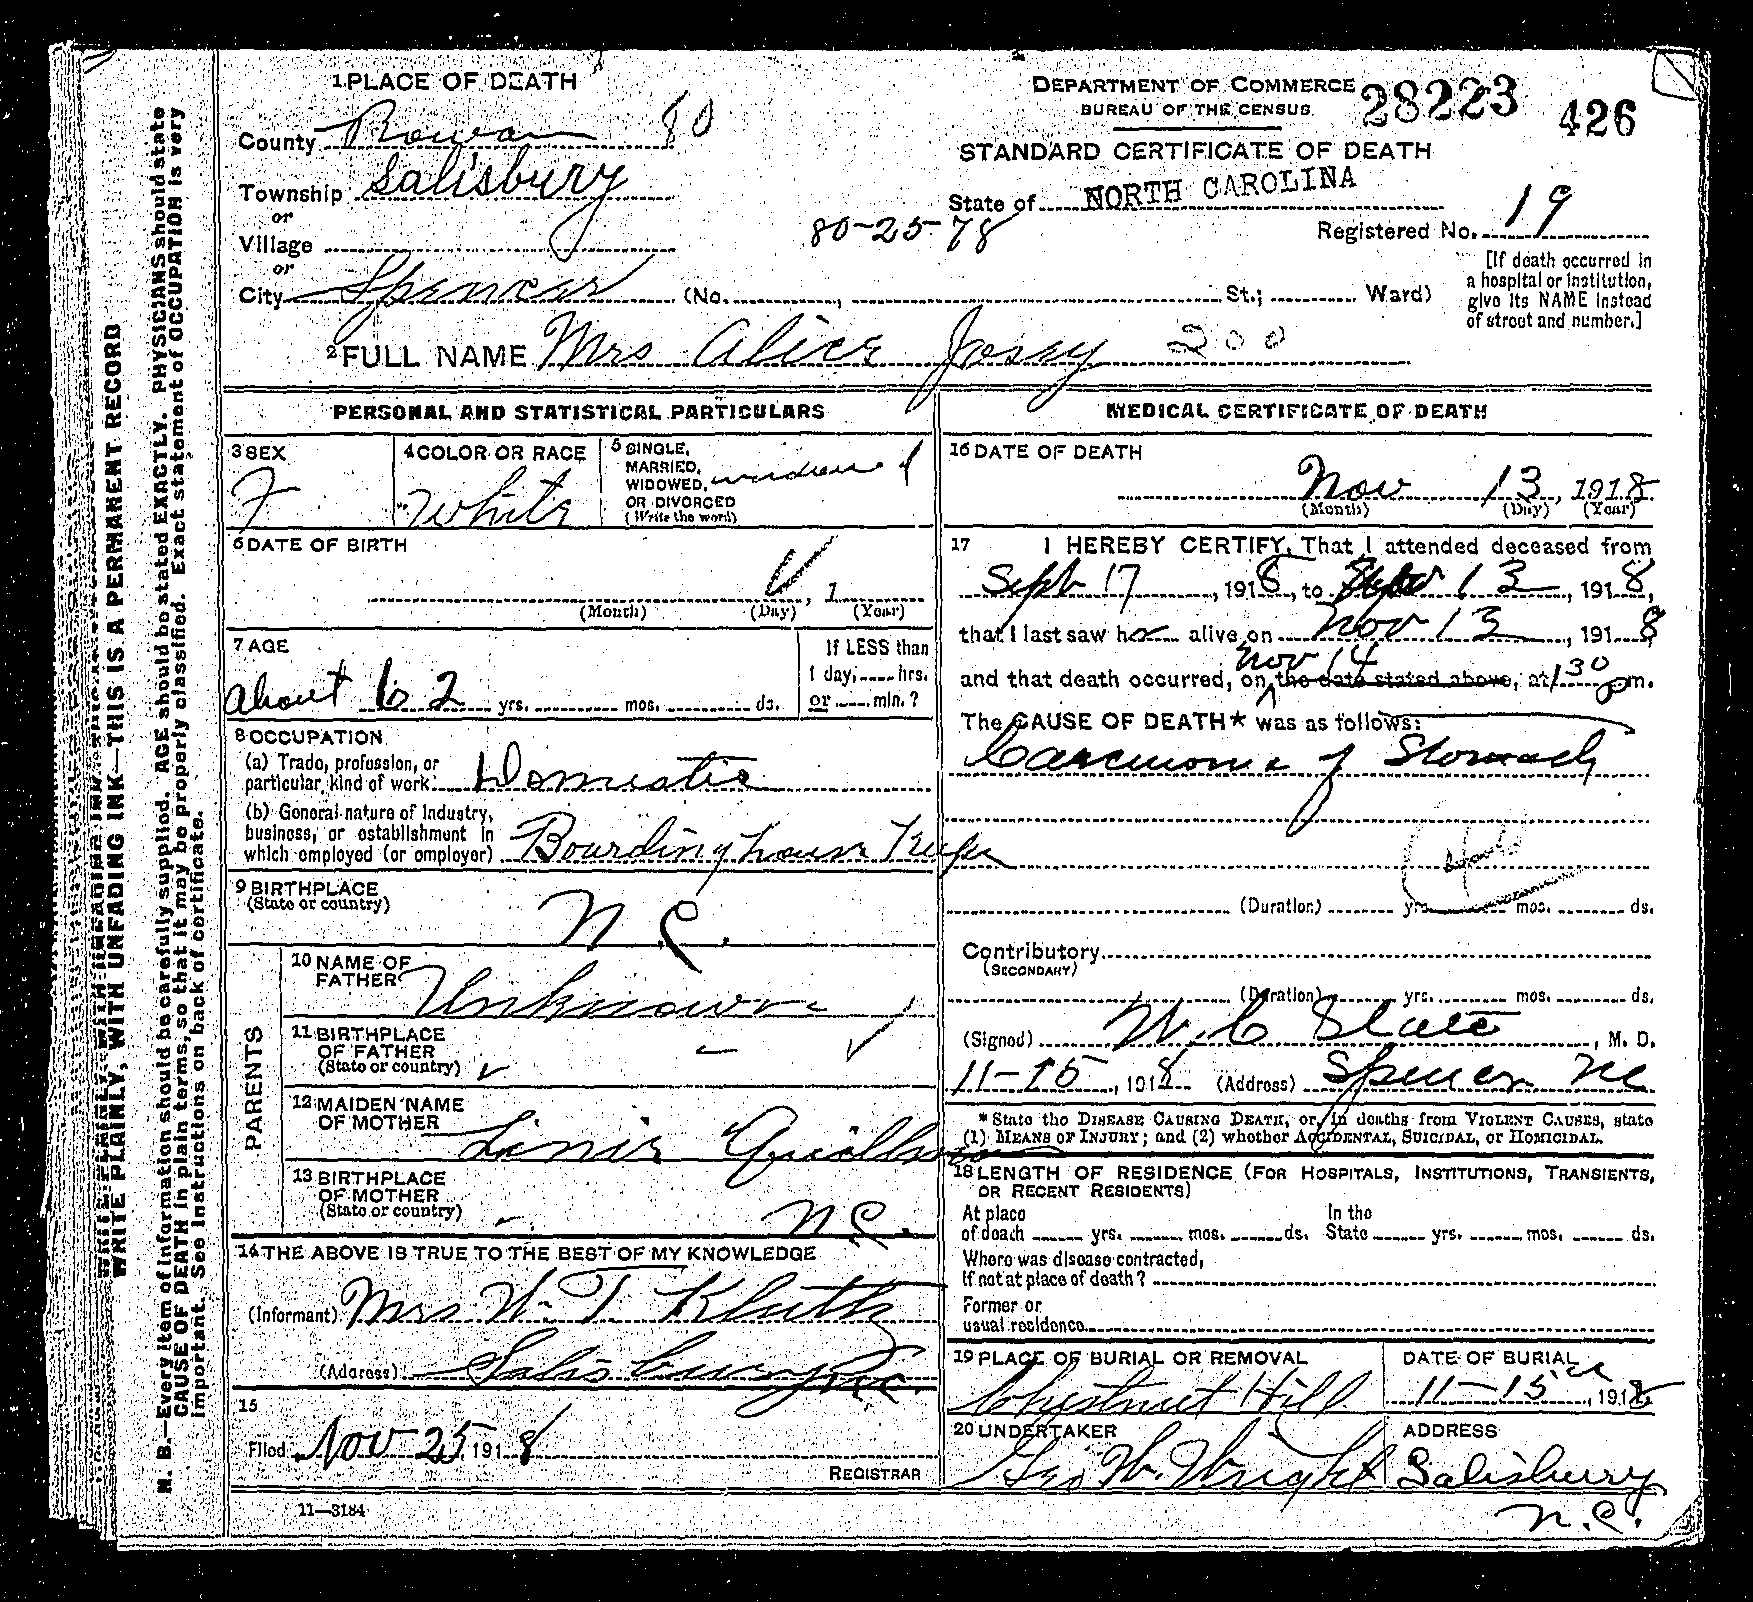 1 PLACE OF DEATH
County Rowan 80
Township Salisbury
or
Village
or
City Spencer (No. , St.; Ward)
80-25-78
DEPARTMENT OF COMMERCE
BUREAU OF THE CENSUS
28223 426
STANDARD CERTIFICATE OF DEATH
State of NORTH CAROLINA
Registered No. 19
[If death occurred in
a hospital or institution,
give its NAME instead
of street and number.]
2 FULL NAME Mrs Alice Josey 200
PERSONAL AND STATISTICAL PARTICULARS
3 SEX
F
4 COLOR OR RACE
White
5 SINGLE,
MARRIED,
WIDOWED,
OR DIVORCED
(Write the word)
widowed
6 DATE OF BIRTH
, 1
(Month) (Day) (Year)
7 AGE
about 62 yrs. mos. ds.
If LESS than
1 day, hrs.
or min.?
8 OCCUPATION
(a) Trade, profession, or
particular kind of work Domestic
(b) General nature of Industry,
business, or establishment in
which employed (or employer) Boarding house Keeper
9 BIRTHPLACE
(State or country)
N.C.
PARENTS
10 NAME OF
FATHER Unknown
11 BIRTHPLACE
OF FATHER
(State or country)
12 MAIDEN NAME
OF MOTHER
13 BIRTHPLACE
OF MOTHER
(State or country) N.C.
14 THE ABOVE IS TRUE TO THE BEST OF MY KNOWLEDGE
(Informant) Mrs W. T. Kluttz
(Address) Salisbury N.C.
15
Filed Nov 25, 1918
REGISTRAR
11-3184
MEDICAL CERTIFICATE OF DEATH
16 DATE OF DEATH
Nov 13, 1918
(Month) (Day) (Year)
17 I HEREBY CERTIFY, That I attended deceased from
Sept 17, 1918, to Nov 13, 1918,
that I last saw her alive on Nov 13, 1918
Nov 14
and that death occurred, on the date stated above, at 1 30 pm.
The CAUSE OF DEATH* was as follows:
Carcinoma of Stomach
(Duration) yrs. mos. ds.
Contributory
(SECONDARY)
(Duration) yrs. mos. ds.
(Signed) , M. D.
11-15, 1918 (Address) Spencer NC
* State the DISEASE CAUSING DEATH, or, in deaths from VIOLENT CAUSES, state
(1) MEANS OF INJURY; and (2) whether ACCIDENTAL, SUICIDAL, or HOMICIDAL.
18 LENGTH OF RESIDENCE (FOR HOSPITALS, INSTITUTIONS, TRANSIENTS,
OR RECENT RESIDENTS)
At place In the
of death yrs. mos. ds. State yrs. mos. ds.
Where was disease contracted,
If not at place of death?
Former or
usual residence
19 PLACE OF BURIAL OR REMOVAL
Chestnut Hill
DATE OF BURIAL
11-15, 1918
20 UNDERTAKER
Geo W. Wright
ADDRESS
Salisbury
N.C.
WRITE PLAINLY, WITH UNFADING INK—THIS IS A PERMANENT RECORD
N. B.—Every item of information should be carefully supplied. AGE should be stated EXACTLY. PHYSICIANS should state
CAUSE OF DEATH in plain terms, so that it may be properly classified. Exact statement of OCCUPATION is very
important. See instructions on back of certificate.